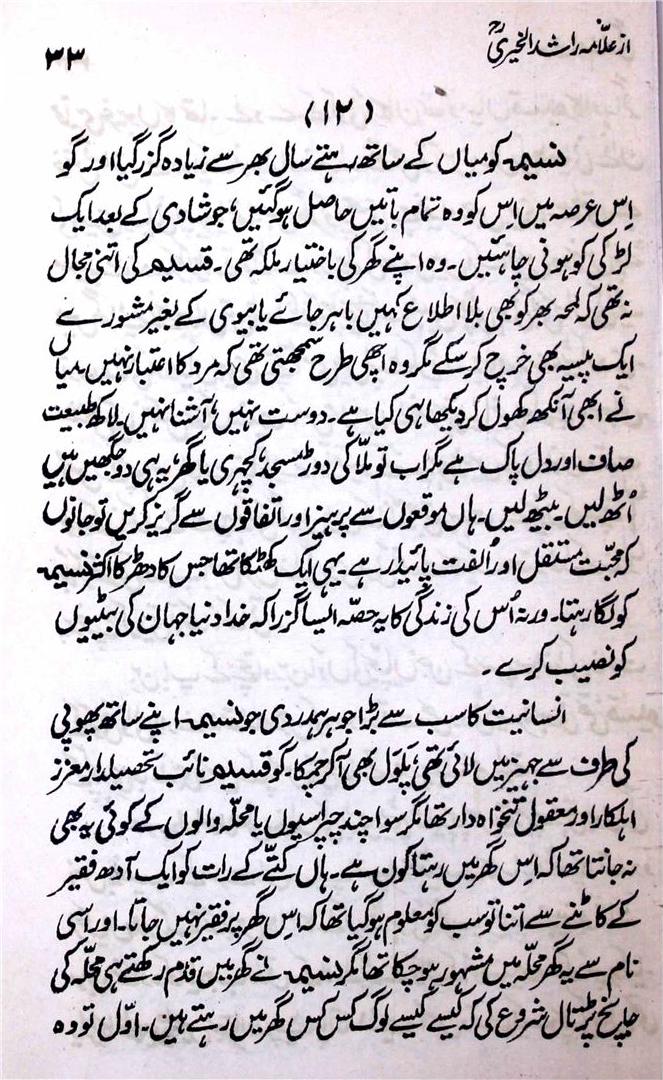 از علّامہ راشد الخیریؒ
۳۳
(۱۲)
نسیمہ کو میاں کے ساتھ رہتے سال بھر سے زیادہ گزر گیا اور گو
اِس عرصہ میں اِس کو وہ تمام باتیں حاصل ہوگئیں، جو شادی کے بعد ایک
لڑکی کو ہونی چاہئیں۔ وہ اپنے گھر کی باختیار ملکہ تھی۔ قسیم کی اتنی مجال
نہ تھی کہ لمحہ بھر کو بھی بلا اطلاع کہیں باہر جائے یا بیوی کے بغیر مشورے
ایک پیسہ بھی خرچ کرسکے مگر وہ اچھی طرح سمجھتی تھی کہ مرد کا اعتبار نہیں میاں
نے ابھی آنکھ کھول کر دیکھا ہی کیا ہے۔ دوست نہیں، آشنا نہیں۔ لاکھ طبیعت
صاف اور دل پاک ہے مگر اب تو ملّا کی دوڑ مسجد، کچہری یا گھر، یہ ہی دو جگھیں ہیں
اُٹھ لیں۔ بیٹھ لیں۔ ہاں موقعوں سے پرہیز اور اتفاقوں سے گریز کریں تو جانوں
کہ محبّت مستقل اور اُلفت پائیدار ہے۔ یہی ایک کھٹکا تھا جس کا دھڑکا اکثر نسیمہ
کو لگا رہتا۔ ورنہ اُس کی زندگی کا یہ حصّہ ایسا گزرا کہ خدا دنیا جہان کی بیٹیوں
کو نصیب کرے۔
انسانیت کا سب سے بڑا جوہر ہمدردی جو نسیمہ اپنے ساتھ پھوپی
کی طرف سے جہیز میں لائی تھی، پَلوَل بھی آکر چمکا۔ گو قسیم نائب تحصیلدار معزز
اہلکار اور معقول تنخواہ دار تھا مگر سوا چند چپراسیوں یا محلہ والوں کے کوئی یہ بھی
نہ جانتا تھا کہ اِس گھر میں رہتا کون ہے۔ ہاں کتّے کے رات کو ایک آدھ فقیر
کے کاٹنے سے اتنا تو سب کو معلوم ہوگیا تھا کہ اِس گھر پر فقیر نہیں جاتا۔ اور اسی
نام سے یہ گھر محلّہ میں مشہور ہو چکا تھا مگر نسیمہ نے گھر میں قدم رکھتے ہی محلّہ کی
جانچ پڑتال شروع کی کہ کیسے کیسے لوگ کس کس گھر میں رہتے ہین۔ اوّل تو وہ